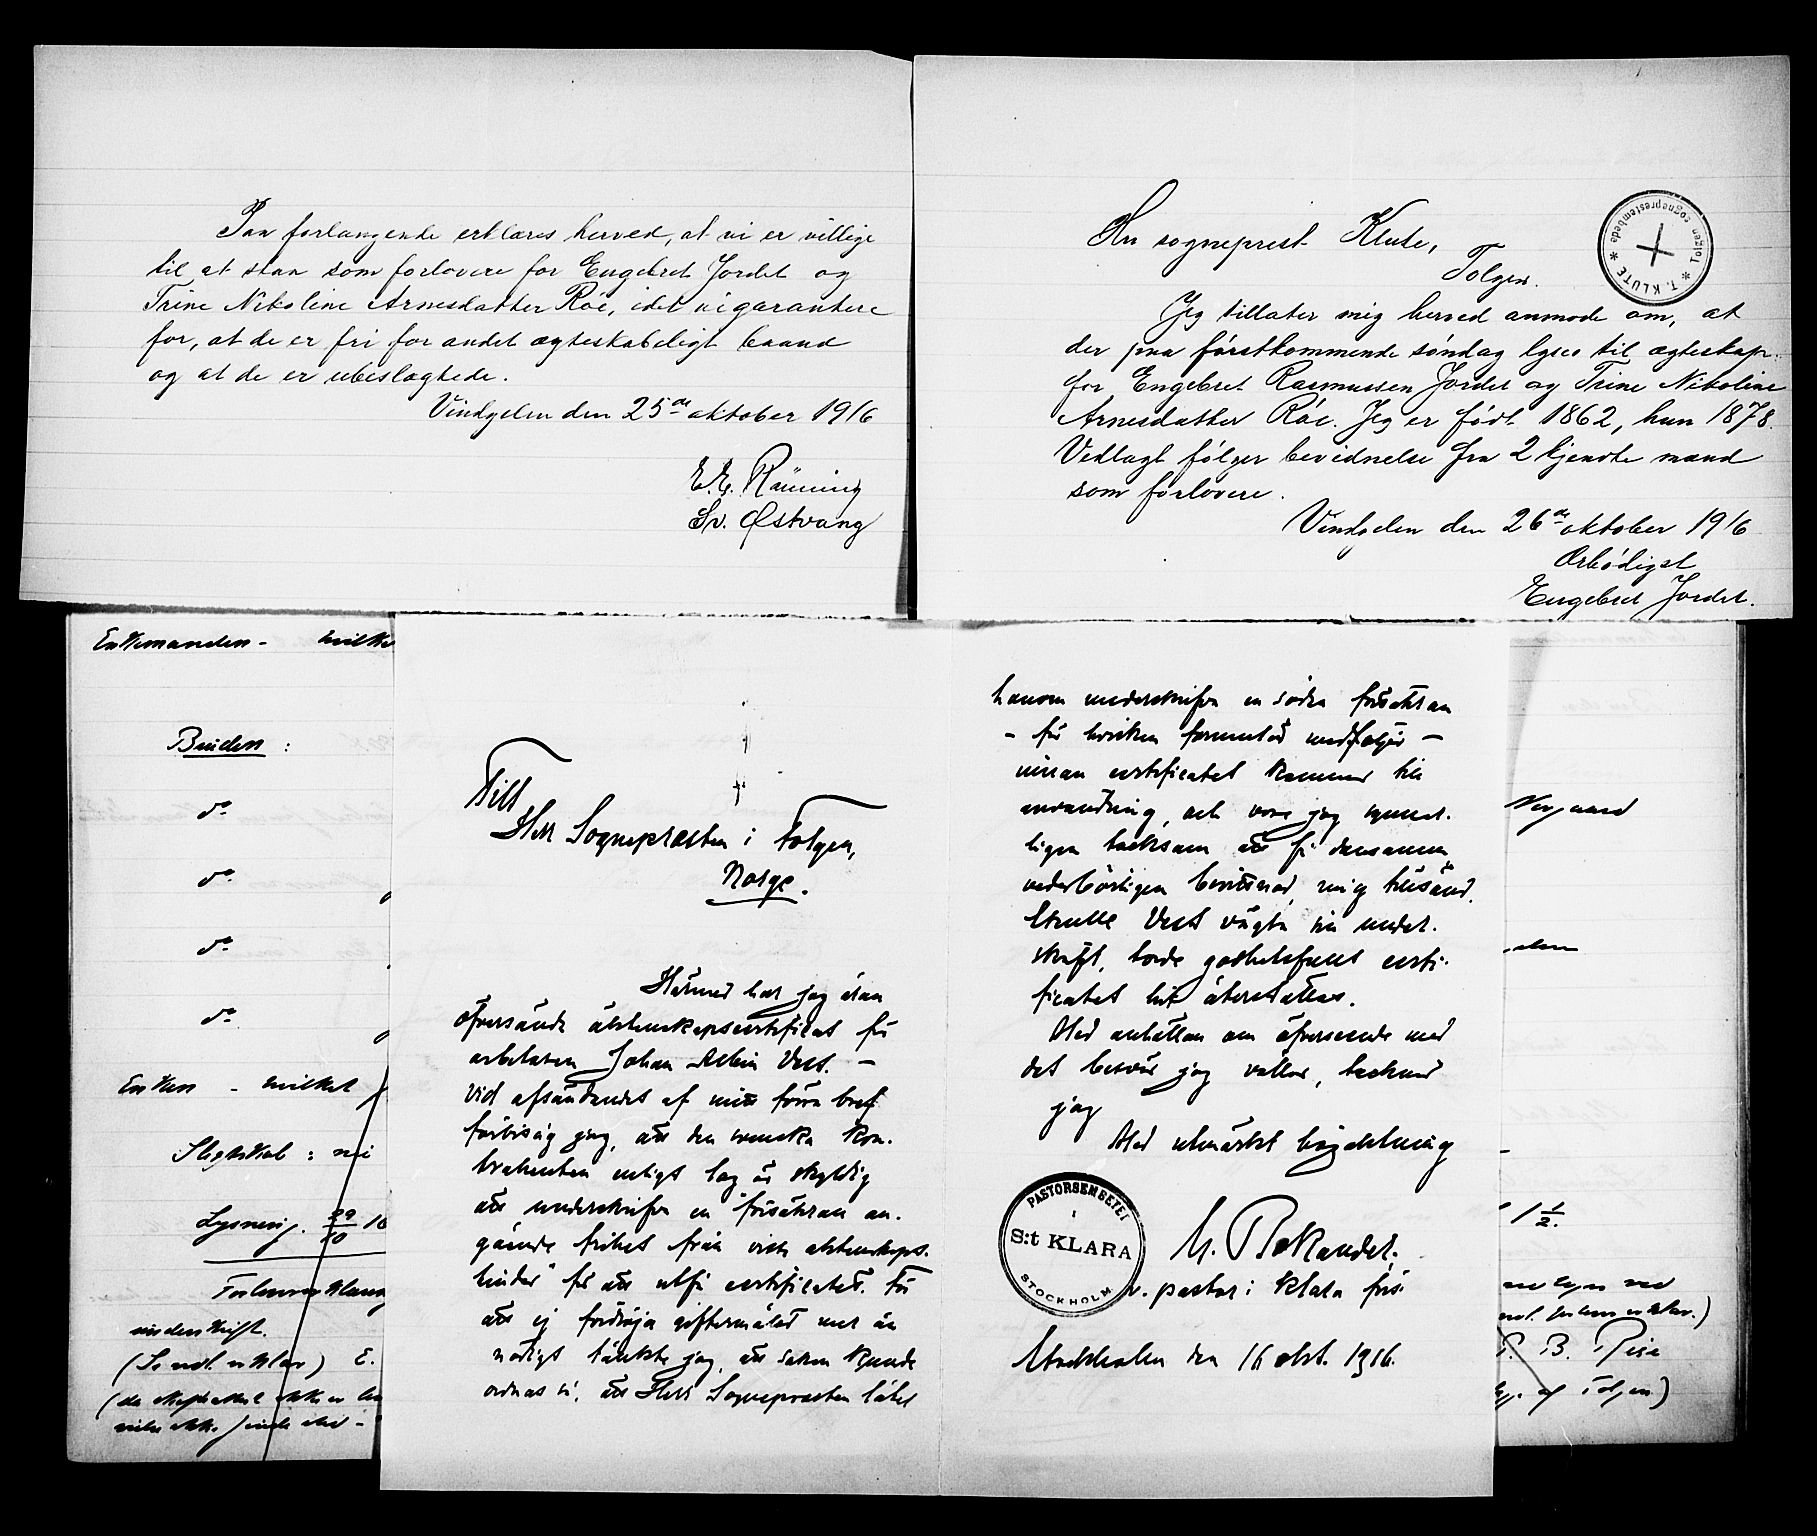 Paa forlangende erklæres herved, at vi er villige
til at staa som forlovere for Engebret Jordet og
Trine Nikoline Arnesdatter Røe, idet vi garantere
for, at de er fri for andet ægteskabeligt baand
og at de er ubeslægtede.
Vindgelen den 25de oktober 1916
E. E. Rønning
Sv. Østvang
Hr. sogneprest Klute,
Tolgen.
T. KLUTE * Tolgen sogneprestembede *
Jeg tillater mig herved anmode om, at
der paa førstkommende søndag lyses til ægteskap
for Engebret Rasmussen Jordet og Trine Nikoline
Arnesdatter Røe. Jeg er født 1862, hun 1878.
Vedlagt følger bevidnelse fra 2 kjendte mænd
som forlovere.
Vindgelen den 26de oktober 1916
Ærbødigst
Engebret Jordet.
Enkemanden - hvilke
Bruden :
do
do
do
do
Enken - hvilket
Slegtskab : nei
Lysning. 29/10 16
underskrift.
Till
Herr Sognepræsten i Tolgen,
Norge.
Härmed har jag äran
öfversända äktenskapscertifikat för
arbetaren Johan Albin Vest. –
Vid afsändandet af mitt förra bref
förbisåg jag, att den svenska kon-
trahenten enligt lag är skyldig
att underskrifva en "försäkran an-
gående frihet från visst äktenskaps-
hinder" för att utfå certifikatet. För
att ej fördröja giftermålet mer än
nödigt tänkte jag, att saken kunde
ordnas så, att Herr Sognepræsten låter
honom underskrifva en sådan försäkran
– för hvilken formulär medföljer –
innan certifikatet kommer till
användning, och vore jag synner-
ligen tacksam att få densamma
vederbörligen bevittnad, mig tillsänd.
Skulle Vest vägra sin under-
skrift, torde godhetsfullt certi-
fikatet hit återställas.
Med anhållan om öfverseende med
det besvär jag vållar, tecknar
jag
Med utmärkt högaktning
PASTORSEMBETET
I
S:t KLARA
STOCKHOLM
v. pastor i Klara förs.
Stockholm den 16 okt. 1916.
1 1/2.
P. B. Riise
af Tolgen)